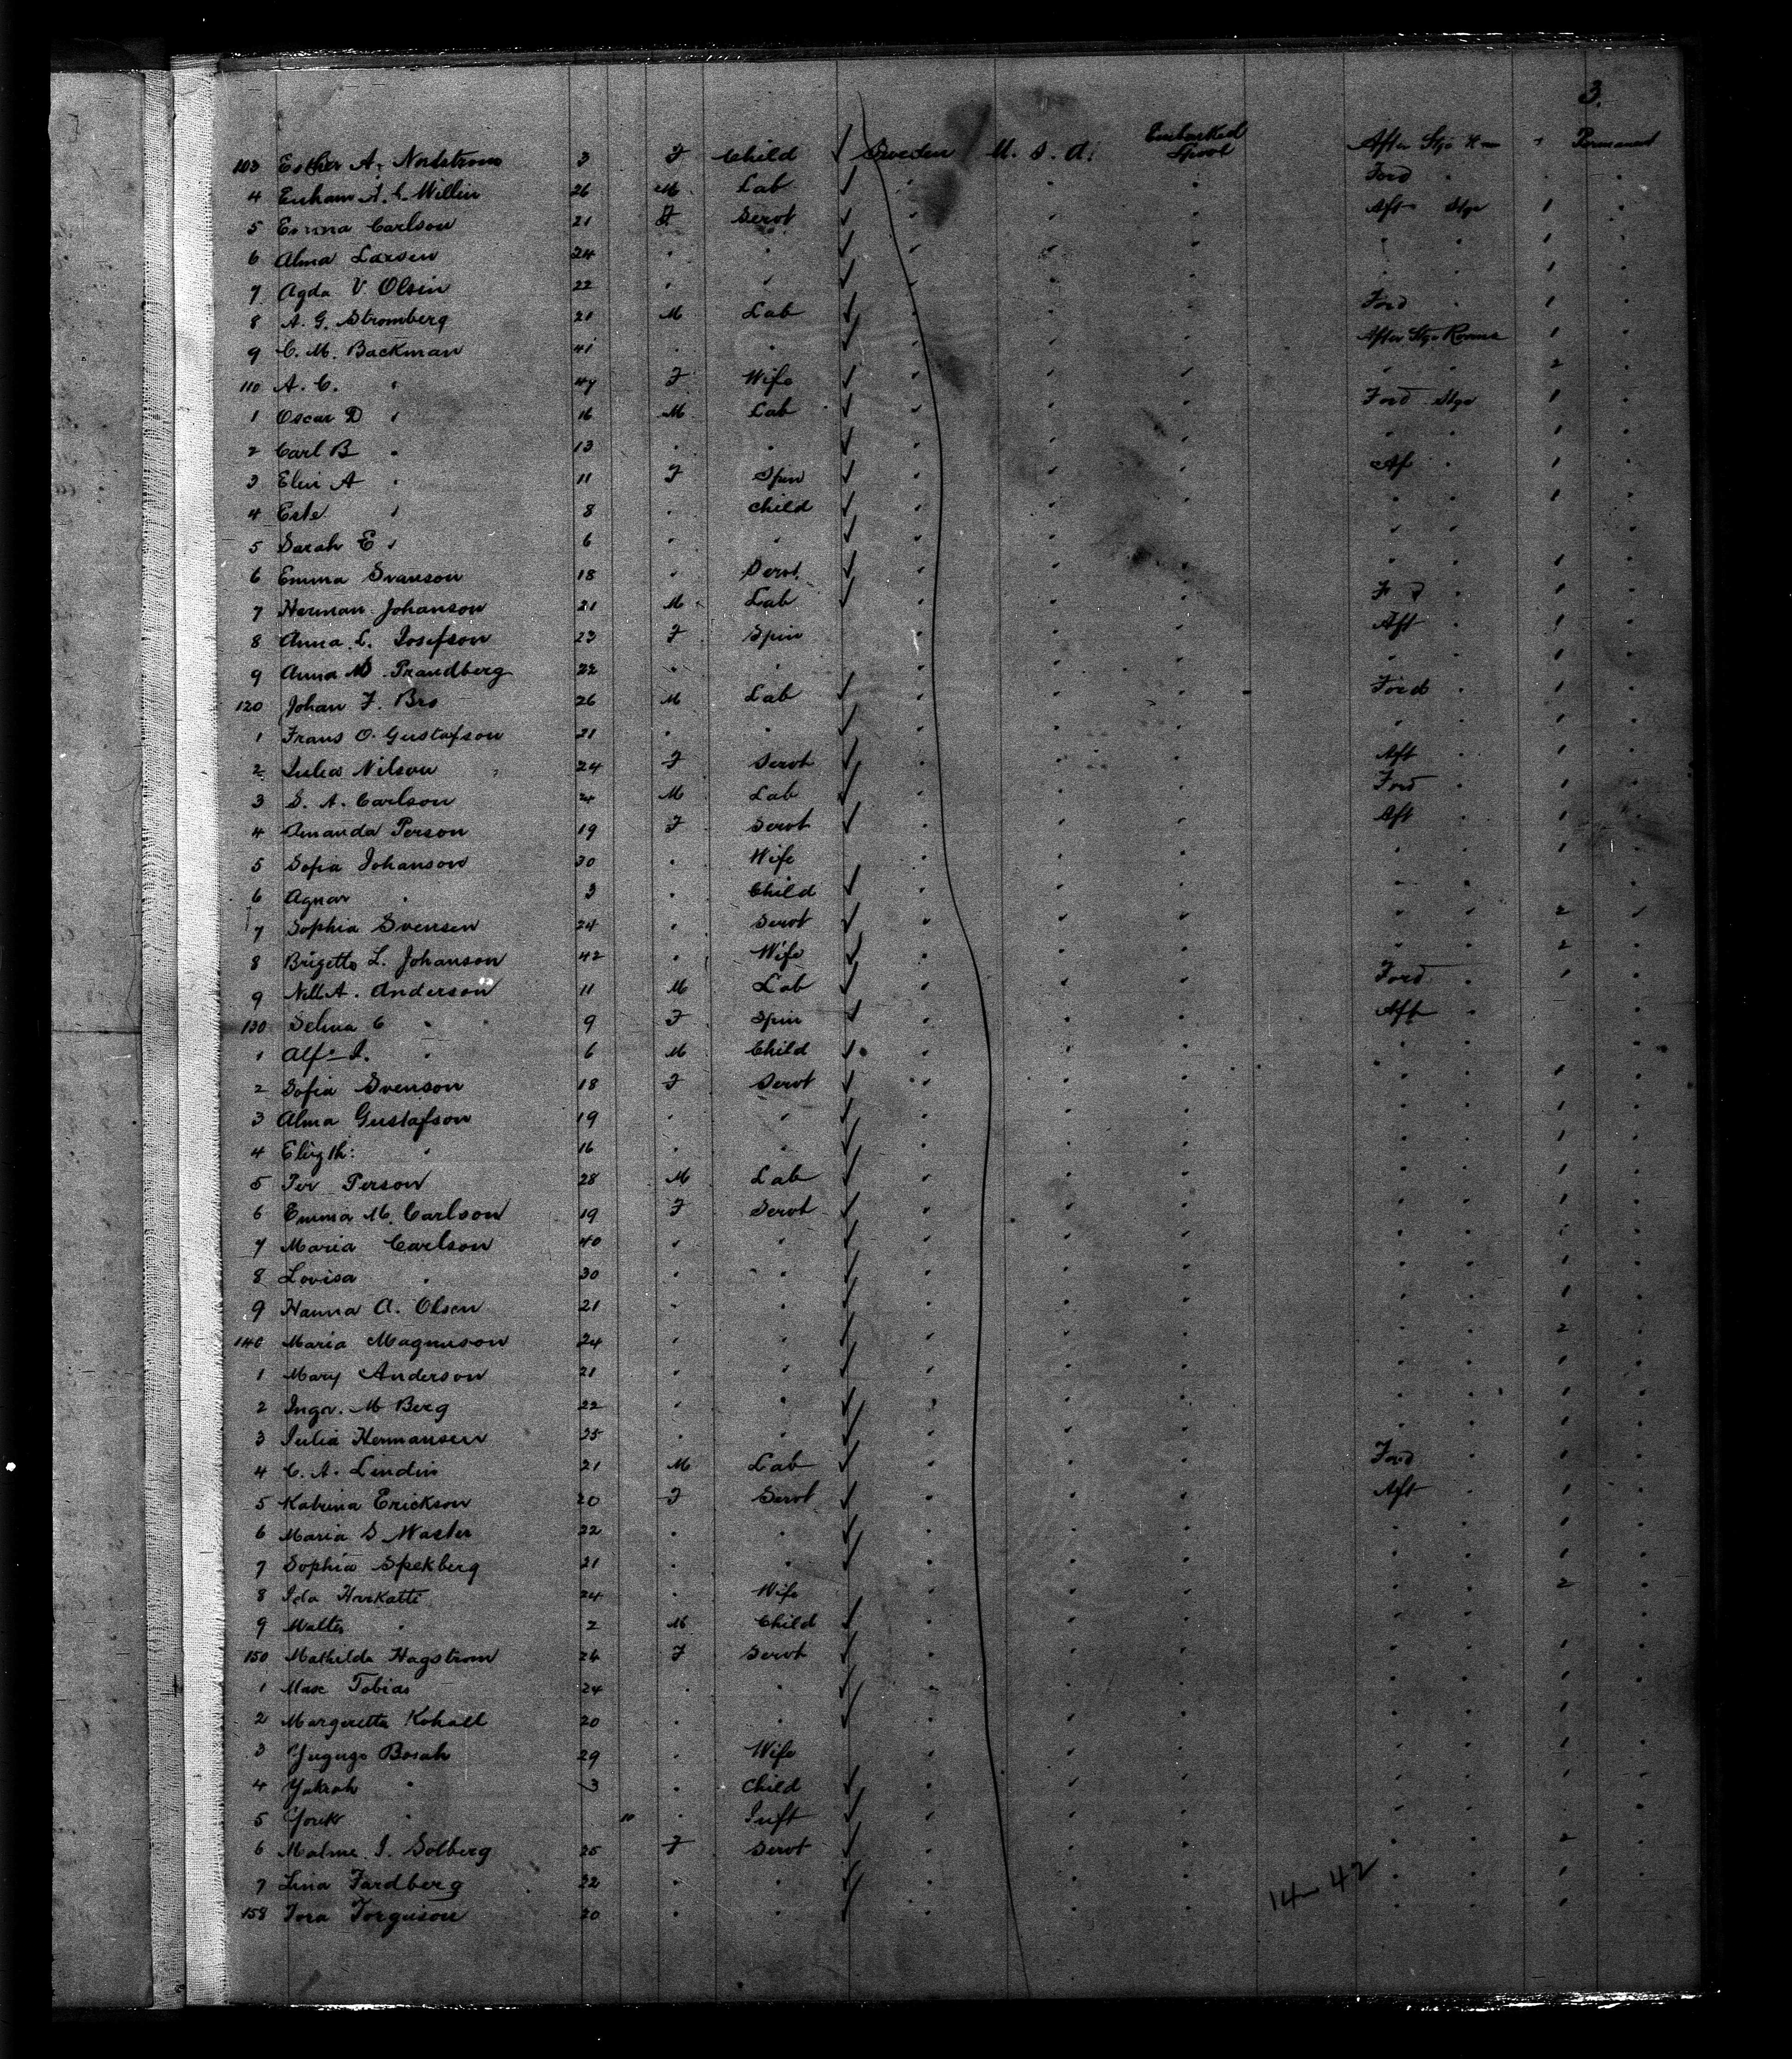 3.
103 Esther A. Nordstrom 3 F Child ✓ Sweden U. S. A. Embarked Lpool After Stge Rm 1 Permanent
4 A. C. Millin 26 M Lab ✓ " " " Ford "
5 Emma Carlson 21 F Servt ✓ " " " Aft Stge 1 "
6 Alma Larsen 24 " " ✓ " " " " " 1 "
7 Agda V Olsin 22 " " ✓ " " " " " 1 "
8 A. G. Stromberg 21 M Lab ✓ " " " Ford " 1 "
9 C. M. Backman 41 " " ✓ " " " After Stge Rooms 1 "
110 A. C. " 47 F Wife ✓ " " " " " 2 "
1 Oscar D " 16 M Lab ✓ " " " Ford Stge 1 "
2 Carl B " 13 " " ✓ " " " " " 1 "
3 Elin A " 11 F Spin ✓ " " " Af " 1 "
4 Este " 8 " Child ✓ " " " " " 1 "
5 Sarah E " 6 " " ✓ " " " " " "
6 Emma Svanson 18 " Servt ✓ " " " " " 1 "
7 Herman Johanson 21 M Lab ✓ " " " F d " 1 "
8 Anna C. Josefson 23 F Spin " " " Aft " 1 "
9 Anna M. Prandberg 22 " " " " " " " 1 "
120 Johan F. Bro 26 M Lab ✓ " " " Ford " 1 "
1 Frans O. Gustafson 21 " " ✓ " " " " " 1 "
2 Julia Nilson 24 F Servt ✓ " " " Aft " 1 "
3 S. A. Carlson 24 M Lab ✓ " " " Ford " 1 "
4 Amanda Person 19 F Servt ✓ " " " Aft " 1 "
5 Sofia Johanson 30 " Wife " " " " " 1 "
6 Agnar " 3 " Child ✓ " " " " " "
7 Sophia Svensen 24 " Servt ✓ " " " " " 2 "
8 Brigetta L. Johanson 42 " Wife ✓ " " " " " 2 "
9 Nell A. Anderson 11 M Lab ✓ " " " Ford " 1 "
130 Selma C " 9 F Spin ✓ " " " Aft " "
1 Alf: J. " 6 M Child ✓ " " " " " "
2 Sofia Svenson 18 F Servt ✓ " " " " " 1 "
3 Alma Gustafson 19 " " ✓ " " " " " 1 "
4 Elizth: " 16 " " ✓ " " " " " 1 "
5 Per Person 28 M Lab ✓ " " " " " 1 "
6 Emma M. Carlson 19 F Servt ✓ " " " " " 1 "
7 Maria Carlson 40 " " ✓ " " " " " 1 "
8 Lovisa " 30 " " ✓ " " " " " 1 "
9 Hanna A. Olsen 21 " " ✓ " " " " " 1 "
140 Maria Magnuson 24 " " ✓ " " " " " 2 "
1 Mary Anderson 21 " " ✓ " " " " " 1 "
2 Inga. M Berg 22 " " ✓ " " " " " 1 "
3 Julia Hermansen 25 " " ✓ " " " " " 1 "
4 C. A. Lindin 21 M Lab ✓ " " " Ford " 1 "
5 Katrina Erickson 20 F Servt ✓ " " " Aft " 1 "
6 Maria S Waster 22 " " ✓ " " " " " 1 "
7 Sophia Spekberg 21 " " ✓ " " " " " 1 "
8 Ida 24 " Wife " " " " " 2 "
9 Walter " 2 M Child ✓ " " " " " "
150 Mathilda Hagstrom 26 F Servt ✓ " " " " " 1 "
1 Max Tobias 24 " " ✓ " " " " " 1 "
2 Margeretta Kohall 20 " " ✓ " " " " " 1 "
3 Bosah 29 " Wife " " " " " 1 "
4 Yakrah " 3 " Child ✓ " " " " " 1 "
5 " 10 " Inft ✓ " " " " " "
6 Malme J. Solberg 25 F Servt ✓ " " " " " 2 "
7 Lina Fardberg 22 " " ✓ " " " " " 1 "
158 Tora Torguson 20 " " ✓ " " " " " 1 "
14 – 42